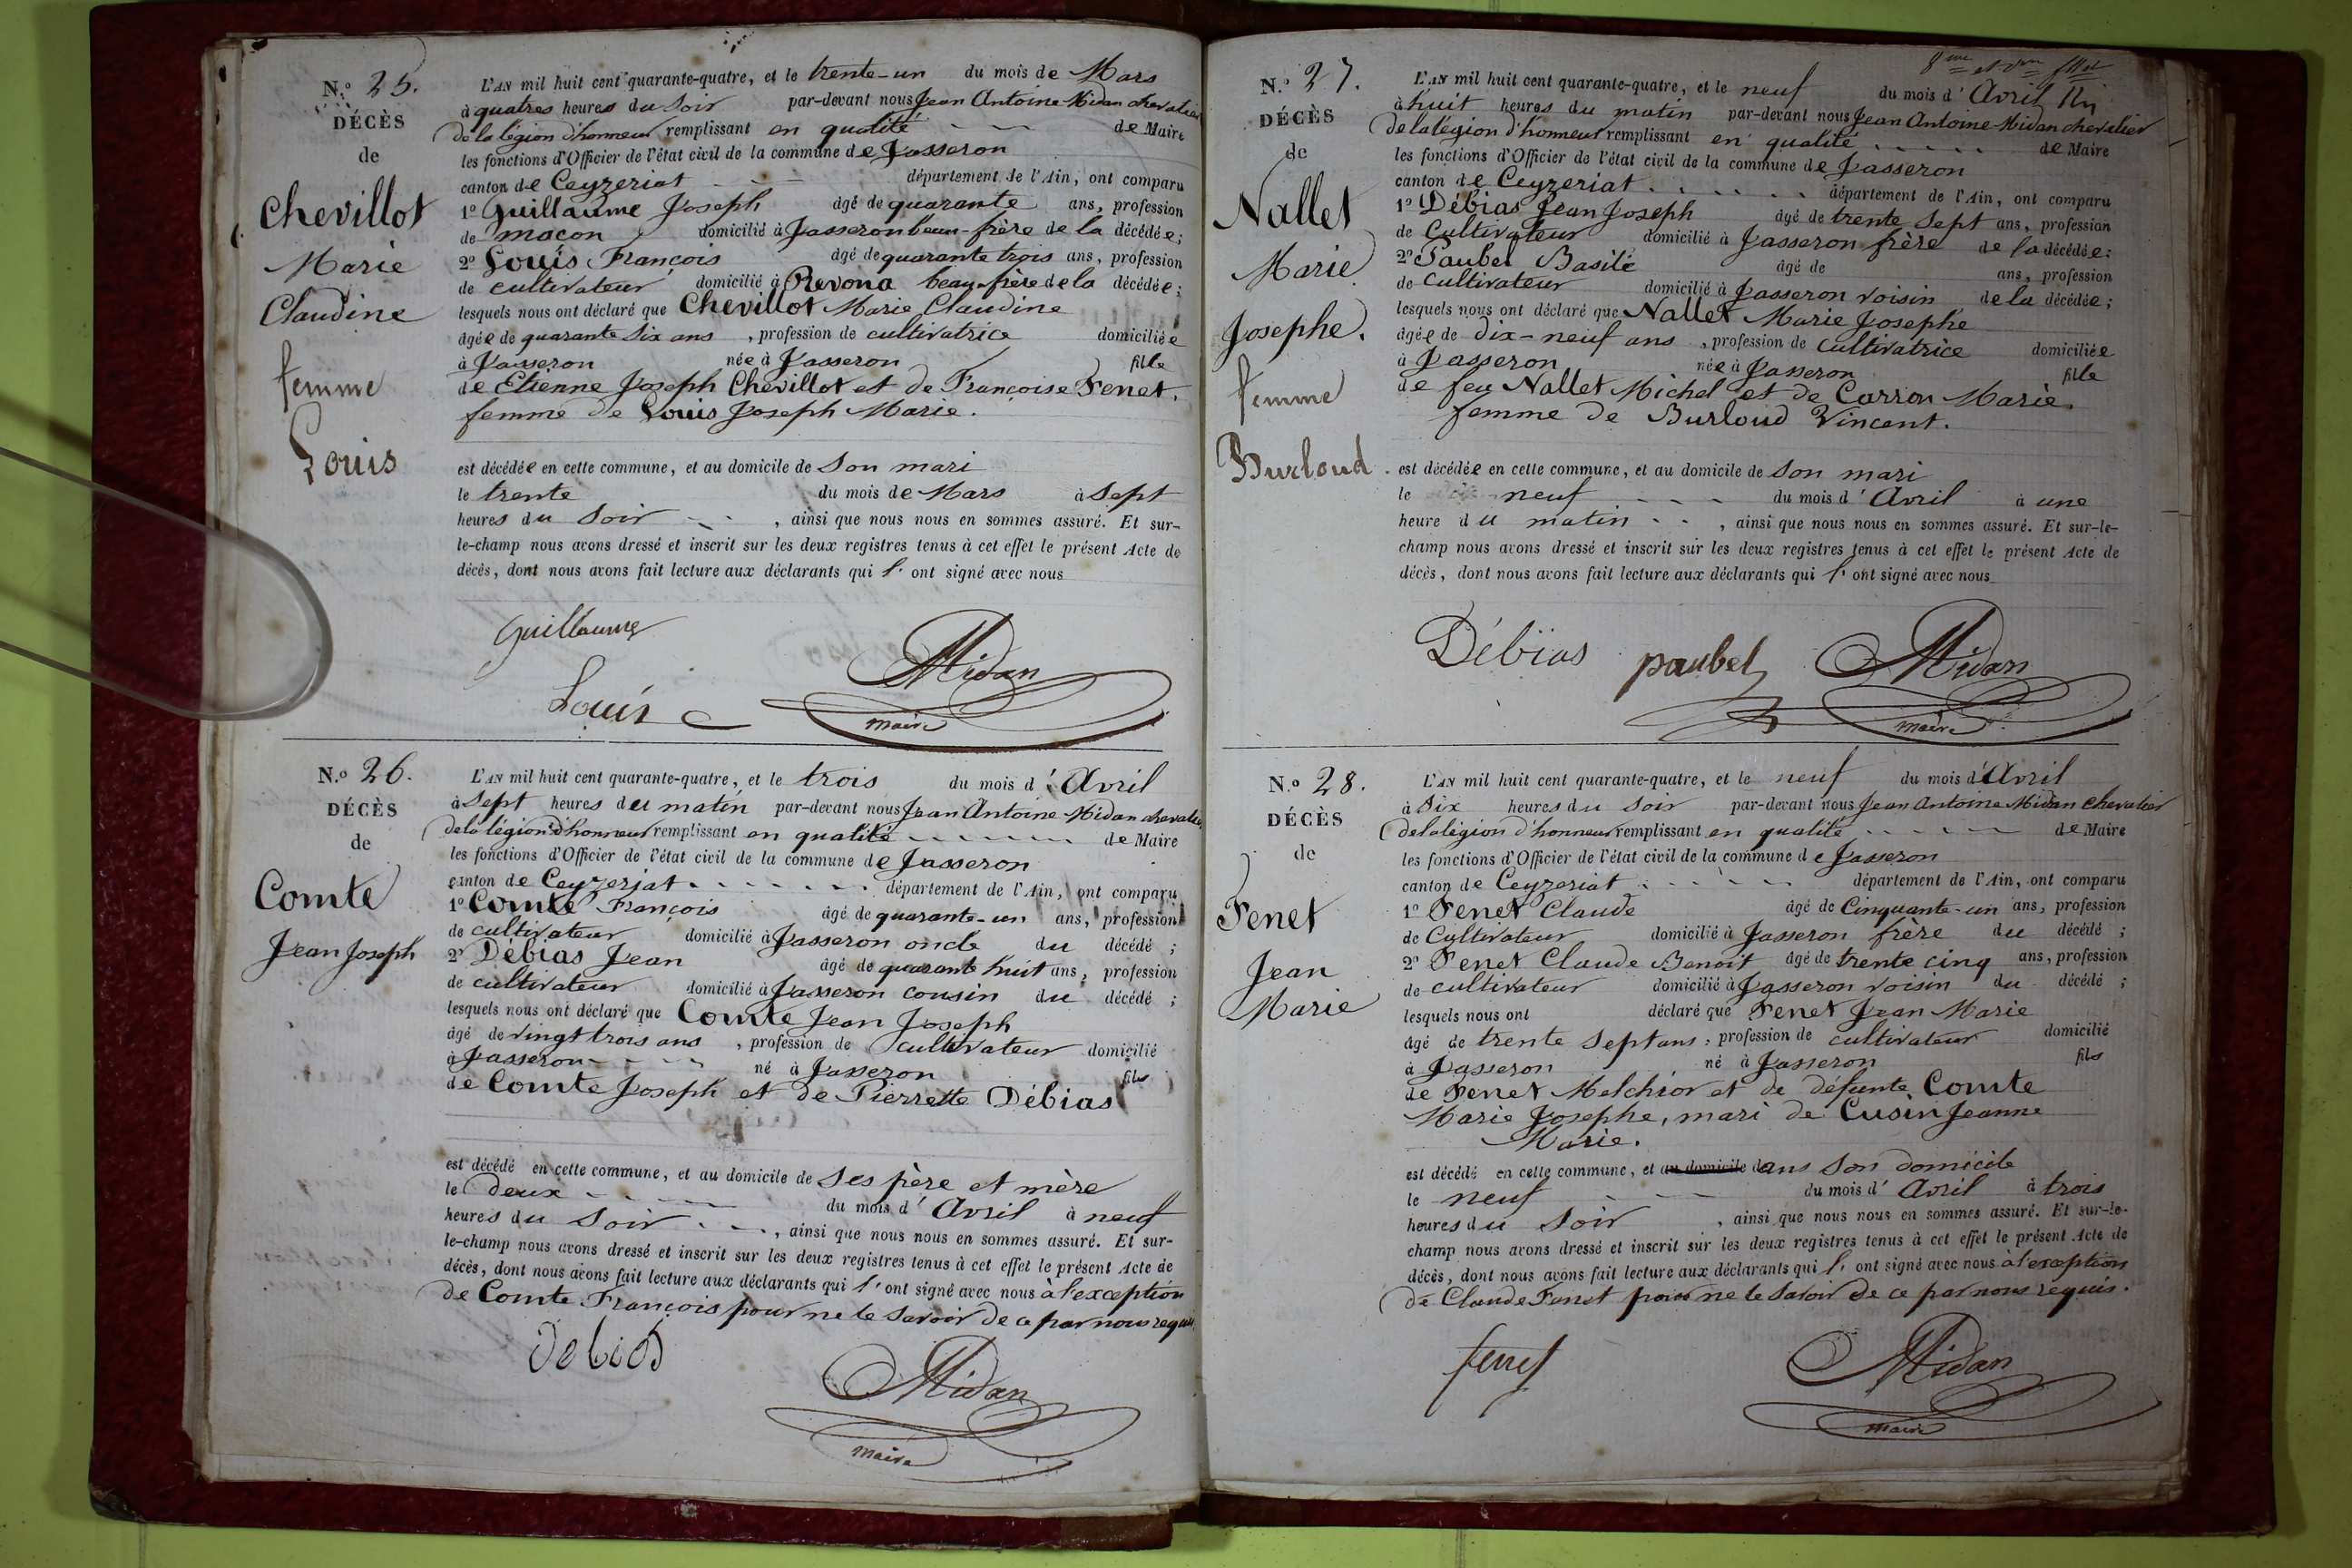 N.º 25.
DÉCÈS
de
Chevillot
Marie
Claudine
femme
Louis
L'AN mil huit cent quarante-quatre, et le trente-un du mois de Mars
à quatres heures du soir par-devant nous Jean Antoine Midan chevalier
de la légion d'honneur remplissant en qualité de Maire
les fonctions d'Officier de l'état civil de la commune de Jasseron
canton de Ceyzeriat département de l'Ain, ont comparu
1º Guillaume Joseph âgé de quarante ans, profession
de macon domicilié à Jasseron beau-frère de la décédée;
2º Louis François âgé de quarante trois ans, profession
de cultivateur domicilié à Revona beau-frère de la décédée;
lesquels nous ont déclaré que Chevillot Marie Claudine
âgée de quarante six ans, profession de cultivatrice domiciliée
à Jasseron née à Jasseron fille
de Etienne Joseph Chevillot et de Françoise Fenet,
femme de Louis Joseph Marie.
est décédée en cette commune, et au domicile de son mari
le trente du mois de Mars à sept
heures du soir, ainsi que nous nous en sommes assuré. Et sur-
le-champ nous avons dressé et inscrit sur les deux registres tenus à cet effet le présent Acte de
décès, dont nous avons fait lecture aux déclarants qui l'ont signé avec nous
Guillaume
Louis
Midan
maire
N.º 26.
DÉCÈS
de
Comte
Jean Joseph
L'AN mil huit cent quarante-quatre, et le trois du mois d'Avril
à sept heures du matin par-devant nous Jean Antoine Midan chevalier
de la légion d'honneur remplissant en qualité de Maire
les fonctions d'Officier de l'état civil de la commune de Jasseron
canton de Ceyzeriat département de l'Ain, ont comparu
1º Comte François âgé de quarante-un ans, profession
de cultivateur domicilié à Jasseron oncle du décédé;
2º Débias Jean âgé de quarante huit ans, profession
de cultivateur domicilié à Jasseron cousin du décédé;
lesquels nous ont déclaré que Comte Jean Joseph
âgé de vingt trois ans, profession de cultivateur domicilié
à Jasseron né à Jasseron fils
de Comte Joseph et de Pierrette Débias
est décédé en cette commune, et au domicile de ses père et mère
le deux du mois d'Avril à neuf
heures du soir, ainsi que nous nous en sommes assuré. Et sur-
le-champ nous avons dressé et inscrit sur les deux registres tenus à cet effet le présent Acte de
décès, dont nous avons fait lecture aux déclarants qui l'ont signé avec nous à l'exception
de Comte François pour ne le savoir de ce par nous requis
Debias
Midan
maire
8me et dern fllet
N.º 27.
DÉCÈS
de
Nallet
Marie
Josephe.
femme
Burloud
L'AN mil huit cent quarante-quatre, et le neuf du mois d'Avril
à huit heures du matin par-devant nous Jean Antoine Midan chevalier
de la légion d'honneur remplissant en qualité de Maire
les fonctions d'Officier de l'état civil de la commune de Jasseron
canton de Ceyzeriat département de l'Ain, ont comparu
1º Débias Jean Joseph âgé de trente sept ans, profession
de Cultivateur domicilié à Jasseron frère de la décédée;
2º Paubel Basile âgé de ans, profession
de cultivateur domicilié à Jasseron voisin de la décédée;
lesquels nous ont déclaré que Nallet Marie Josephe
âgée de dix-neuf ans, profession de cultivatrice domiciliée
à Jasseron née à Jasseron fille
de feu Nallet Michel et de Carron Marie.
femme de Burloud Vincent.
est décédée en cette commune, et au domicile de son mari
le neuf du mois d'Avril à une
heure du matin, ainsi que nous nous en sommes assuré. Et sur-le-
champ nous avons dressé et inscrit sur les deux registres tenus à cet effet le présent Acte de
décès, dont nous avons fait lecture aux déclarants qui l'ont signé avec nous
Débias
paubel
Midan
maire
N.º 28.
DÉCÈS
de
Fenet
Jean
Marie
L'AN mil huit cent quarante-quatre, et le neuf du mois d'Avril
à six heures du soir par-devant nous Jean Antoine Midan chevalier
de la légion d'honneur remplissant en qualité de Maire
les fonctions d'Officier de l'état civil de la commune de Jasseron
canton de Ceyzeriat département de l'Ain, ont comparu
1º Fenet Claude âgé de Cinquante-un ans, profession
de Cultivateur domicilié à Jasseron frère du décédé;
2º Fenet Claude Benoit âgé de trente cinq ans, profession
de cultivateur domicilié à Jasseron voisin du décédé;
lesquels nous ont déclaré que Fenet Jean Marie
âgé de trente sept ans, profession de cultivateur domicilié
à Jasseron né à Jasseron fils
de Fenet Melchior et de défunte Comte
Marie Josephe, mari de Cusin Jeanne
Marie.
est décédé en cette commune, et au domicile dans son domicile
le neuf du mois d'Avril à trois
heures du soir, ainsi que nous nous en sommes assuré. Et sur-le-
champ nous avons dressé et inscrit sur les deux registres tenus à cet effet le présent Acte de
décès, dont nous avons fait lecture aux déclarants qui l'ont signé avec nous à l'exception
de Claude Fenet pour ne le savoir de ce par nous requis.
fenet
Midan
maire